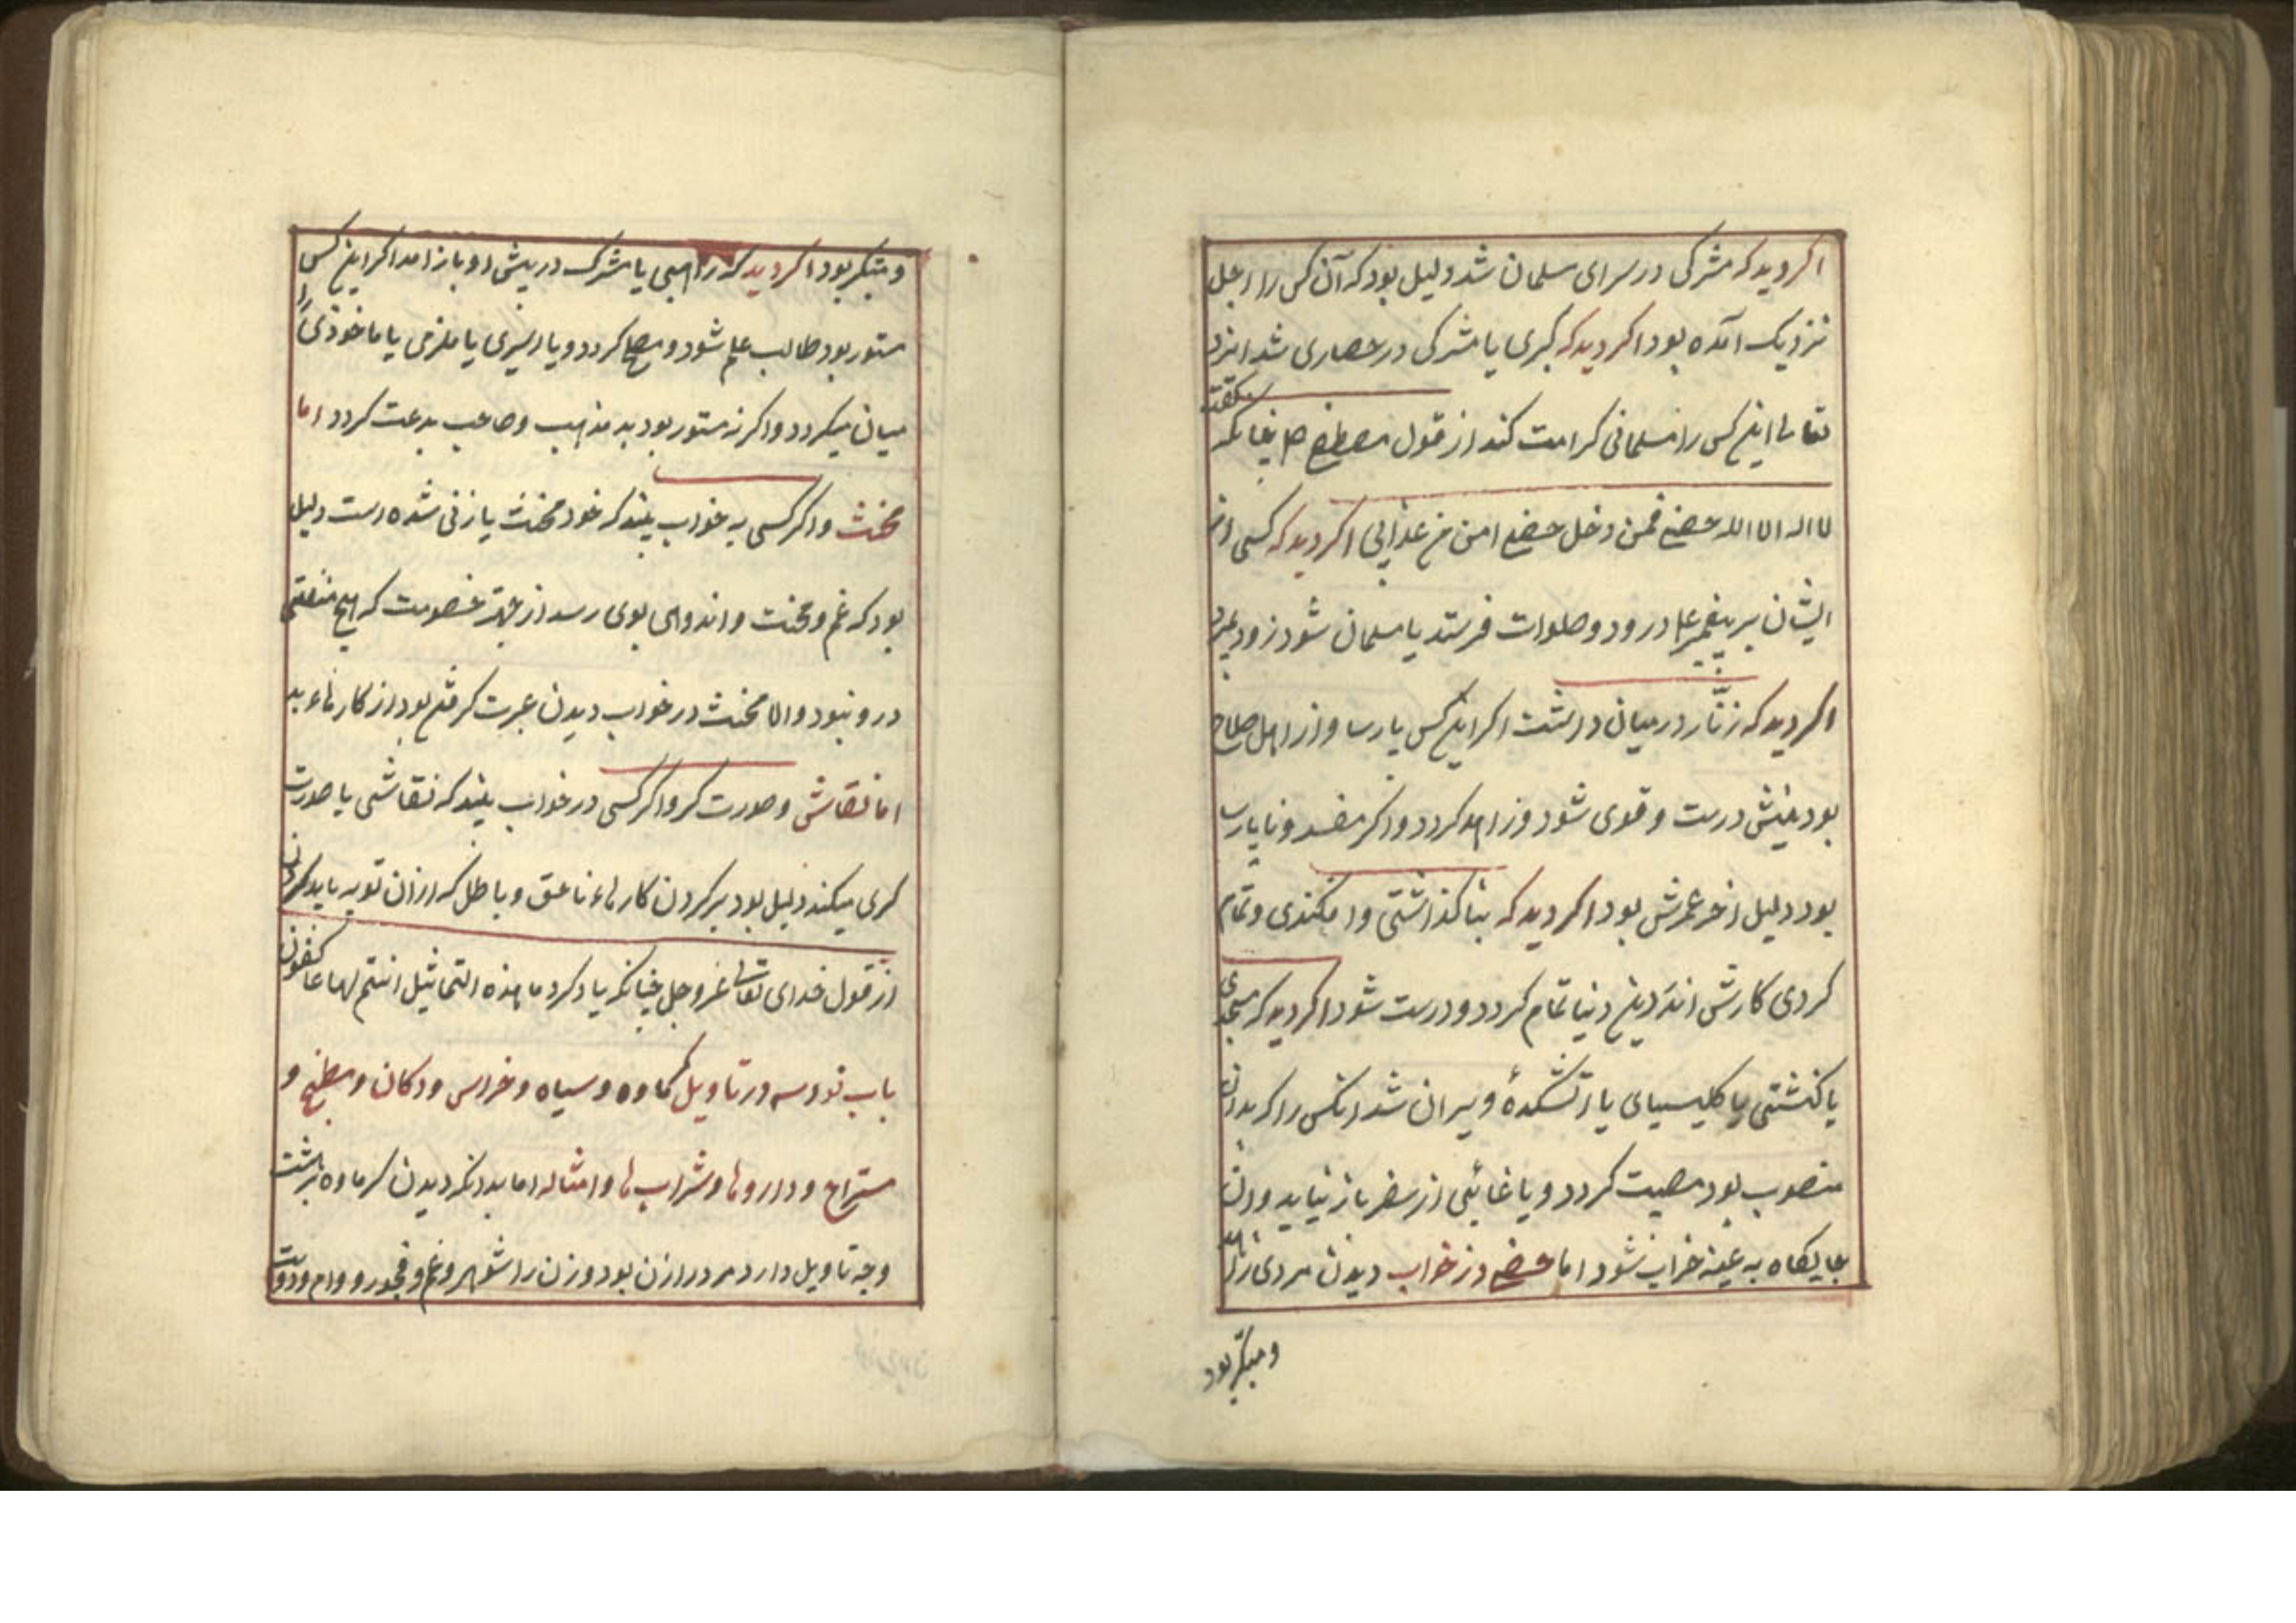 اکر دید که مشرکی در سرای مسلمان شد دلیل بود که آن کس را اجل
نزدیک آمده بود اکر دید که کبری یا مشرکی در حصاری شد ایزد
تعالی این کس را مسلمانی کرامت کند از قول مصطفی صلم چنانکه کفت
لا اله الا الله حصنی فمن دخل حصنی امن من عذابی اکر دید که کسی از
ایشان بر پیغمبر علم درود و صلوات فرستد یا مسلمان شود زود بمیرد
اکر دید که زنّار در میان داشت اکر این کس پارسا و از اهل صلاح
بود دینش درست و قوی شود و زاهد کردد و اکر مفسد و ناپارسا
بود دلیل اخر عمرش بود اکر دید که بنا کذاشتی و افکندی و تمام
کردی کارش اندر دین دنیا تمام کردد و درست شود اکر دید که مسجدی
یا کنشتی یا کلیسیای یا اتشکدهٔ ویران شد انکس را که بدان
منصوب بود مصیبت کردد و یا غائبی از سفر باز نیاید و ان
جایکاه به عینه خراب شود اما خصی در خواب دیدن مردی زاهد
و متکبر بود
و متکبر بود اکر دید که راهبی یا مشرک در پیش او باز امد اکر این کس
مستور بود طالب علم شود و مصلح کردد و یا اسیری یا ملزمی یا ماخوذی را
میان میکردد و اکر نه مستور بود بد مذهب و صاحب بدعت کردد اما
مخنث و اکر کسی به خواب بیند که خود مخنث یا زنی شده است دلیل
بود که غم و محنت و اندوهی بوی رسد از جهة خصومت که هیچ منفعتی
درو نبود و الا مخنث در خواب دیدن عبرت کرفتن بود از کارهاء بد
اما نقاش و صورت کر و اکر کسی در خواب بیند که نقاشی یا صورت
کری میکند دلیل بود بر کردن کارهاء ناحق و باطل که از ان توبه باید کردن
از قول خدای تعالی عزوجل چنانکه یاد کرد ما هذه التماثیل انتم لها عاکفون
باب نود سه در تاویل کماوه و سیاه و خراس و دکان و مطبخ و
مستراح و داروها و شراب ها و امثاله اما بدانکه دیدن کرماوه بهشت
وجه تاویل دارد مرد را زن بود و زن را شوهر و غم و فجور و وام و دوست